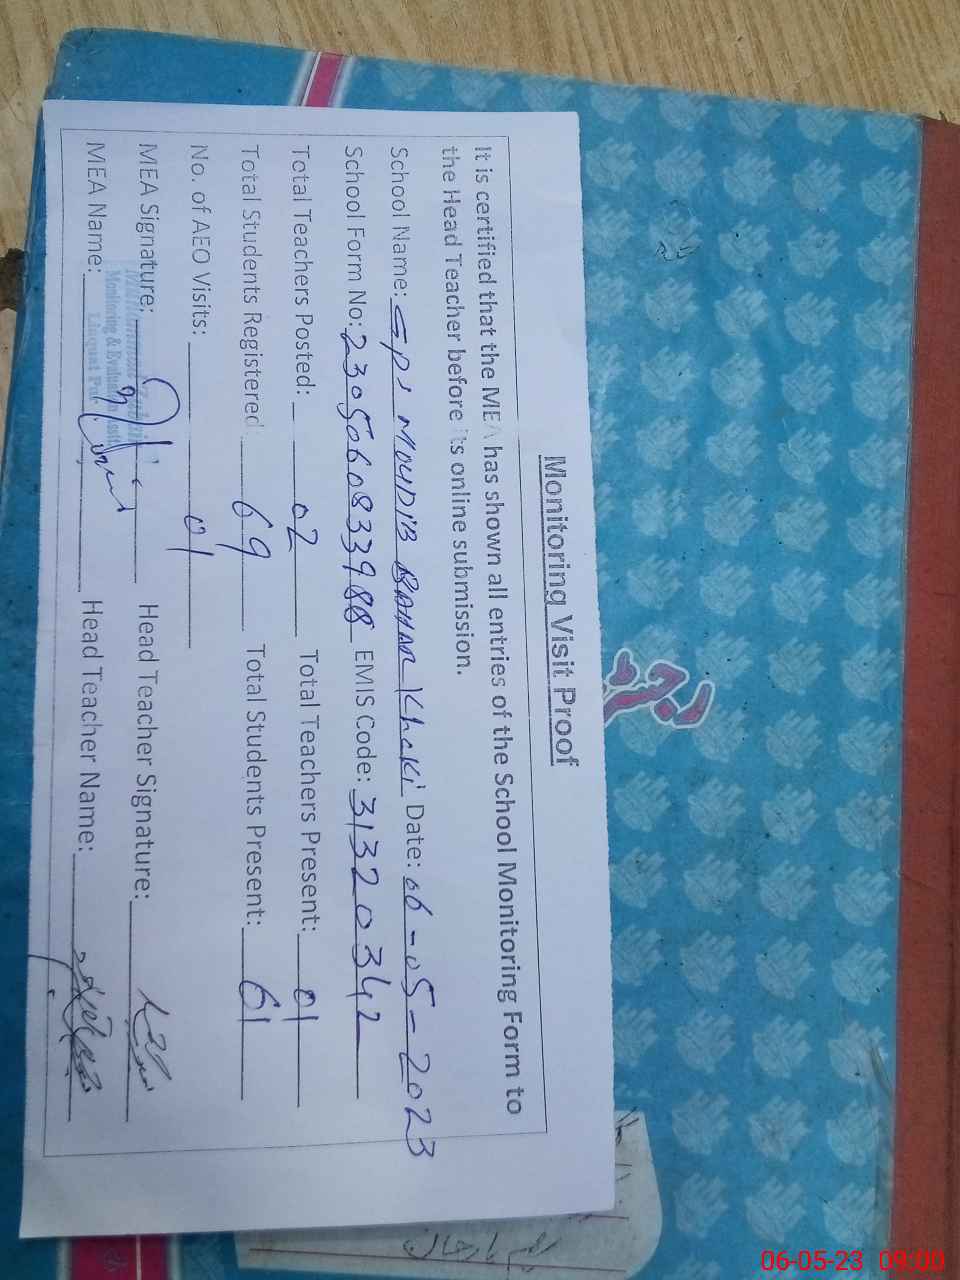 Monitoring Visit Proof
It is certified that the MEA has shown all entries of the School Monitoring Form to
the Head Teacher before its online submission.
School Name: GPS Date: 06-05-2023
School Form No: 2305060833988 EMIS Code: 31320342
Total Teachers Posted: 02 Total Teachers Present: 01
Total Students Registered 69 Total Students Present: 61
No. of AEO Visits: 01
MEA Signature: Head Teacher Signature:
MEA Name: Head Teacher Name:
Monitoring & Evaluation
رجسٹر
06-05-23 09:00